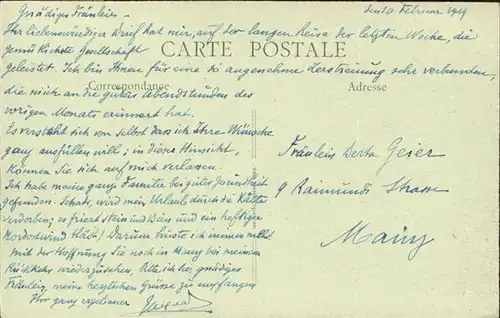 Gnädiges Fräulein –
den 10 Februar 1919
Ihr liebenswürdiger Brief hat mir, auf der langen Reise der letzten Woche, die
gemütlichste Gesellschaft
CARTE POSTALE
geleistet. Ich bin Ihnen für eine so angenehme Zerstreuung sehr verbunden,
Correspondance
Adresse
die mich an die guten Abendstunden des
vorigen Monats erinnert hat.
Es versteht sich von selbst dass ich Ihre Wünsche
ganz ausfüllen will; in dieser Hinsicht,
können Sie sich auf mich verlassen.
Ich habe meine ganz Familie bei guter Gesundheit
gefunden. Schade, wird mein Urlaub durch die Kälte
verdorben; es friert Stein und Bein und ein heftiger
Nordostwind bläst! Darum huste ich immer mehr.
Mit der Hoffnung Sie noch in Mainz bei meinem
Rückkehr wiederzusehen, bitte ich Sie, gnädiges
Fräulein, meine herzlichen Grüsse zu empfangen
Ihr ganz ergebener
Fräulein Berta Geier
9 Raimundi Strasse
Mainz